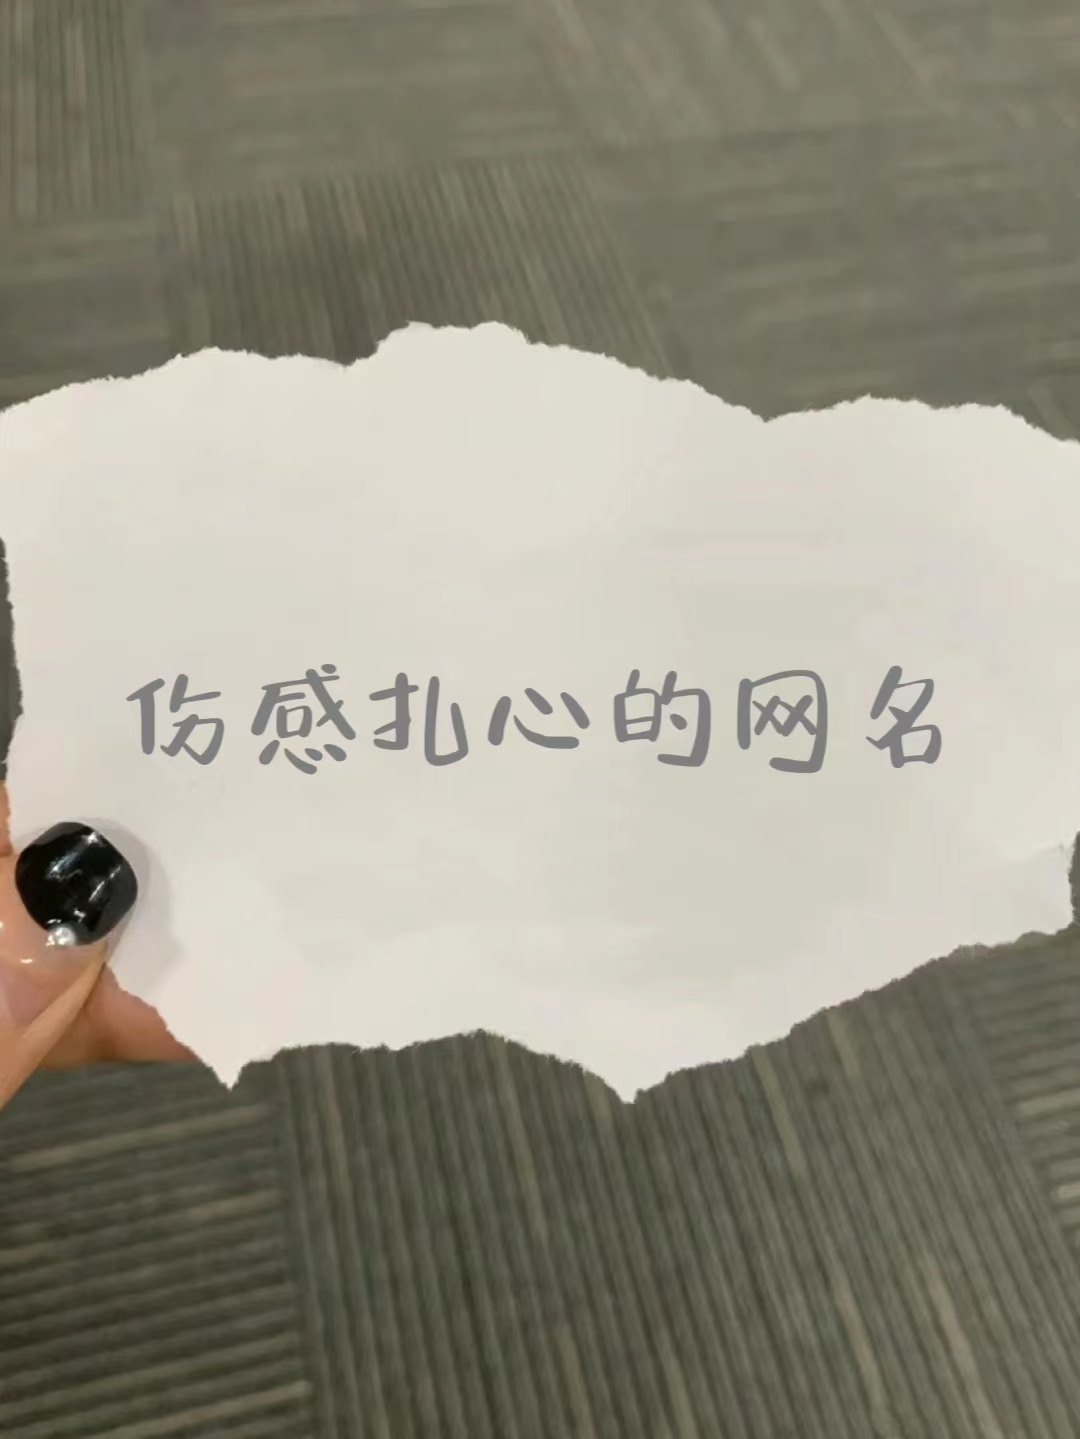 伤感扎心的网名